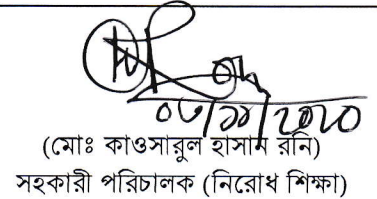 ০৬/১১/২০২০
(মোঃ কাওসারুল হাসান রনি)
সহকারী পরিচালক (নিরোধ শিক্ষা)